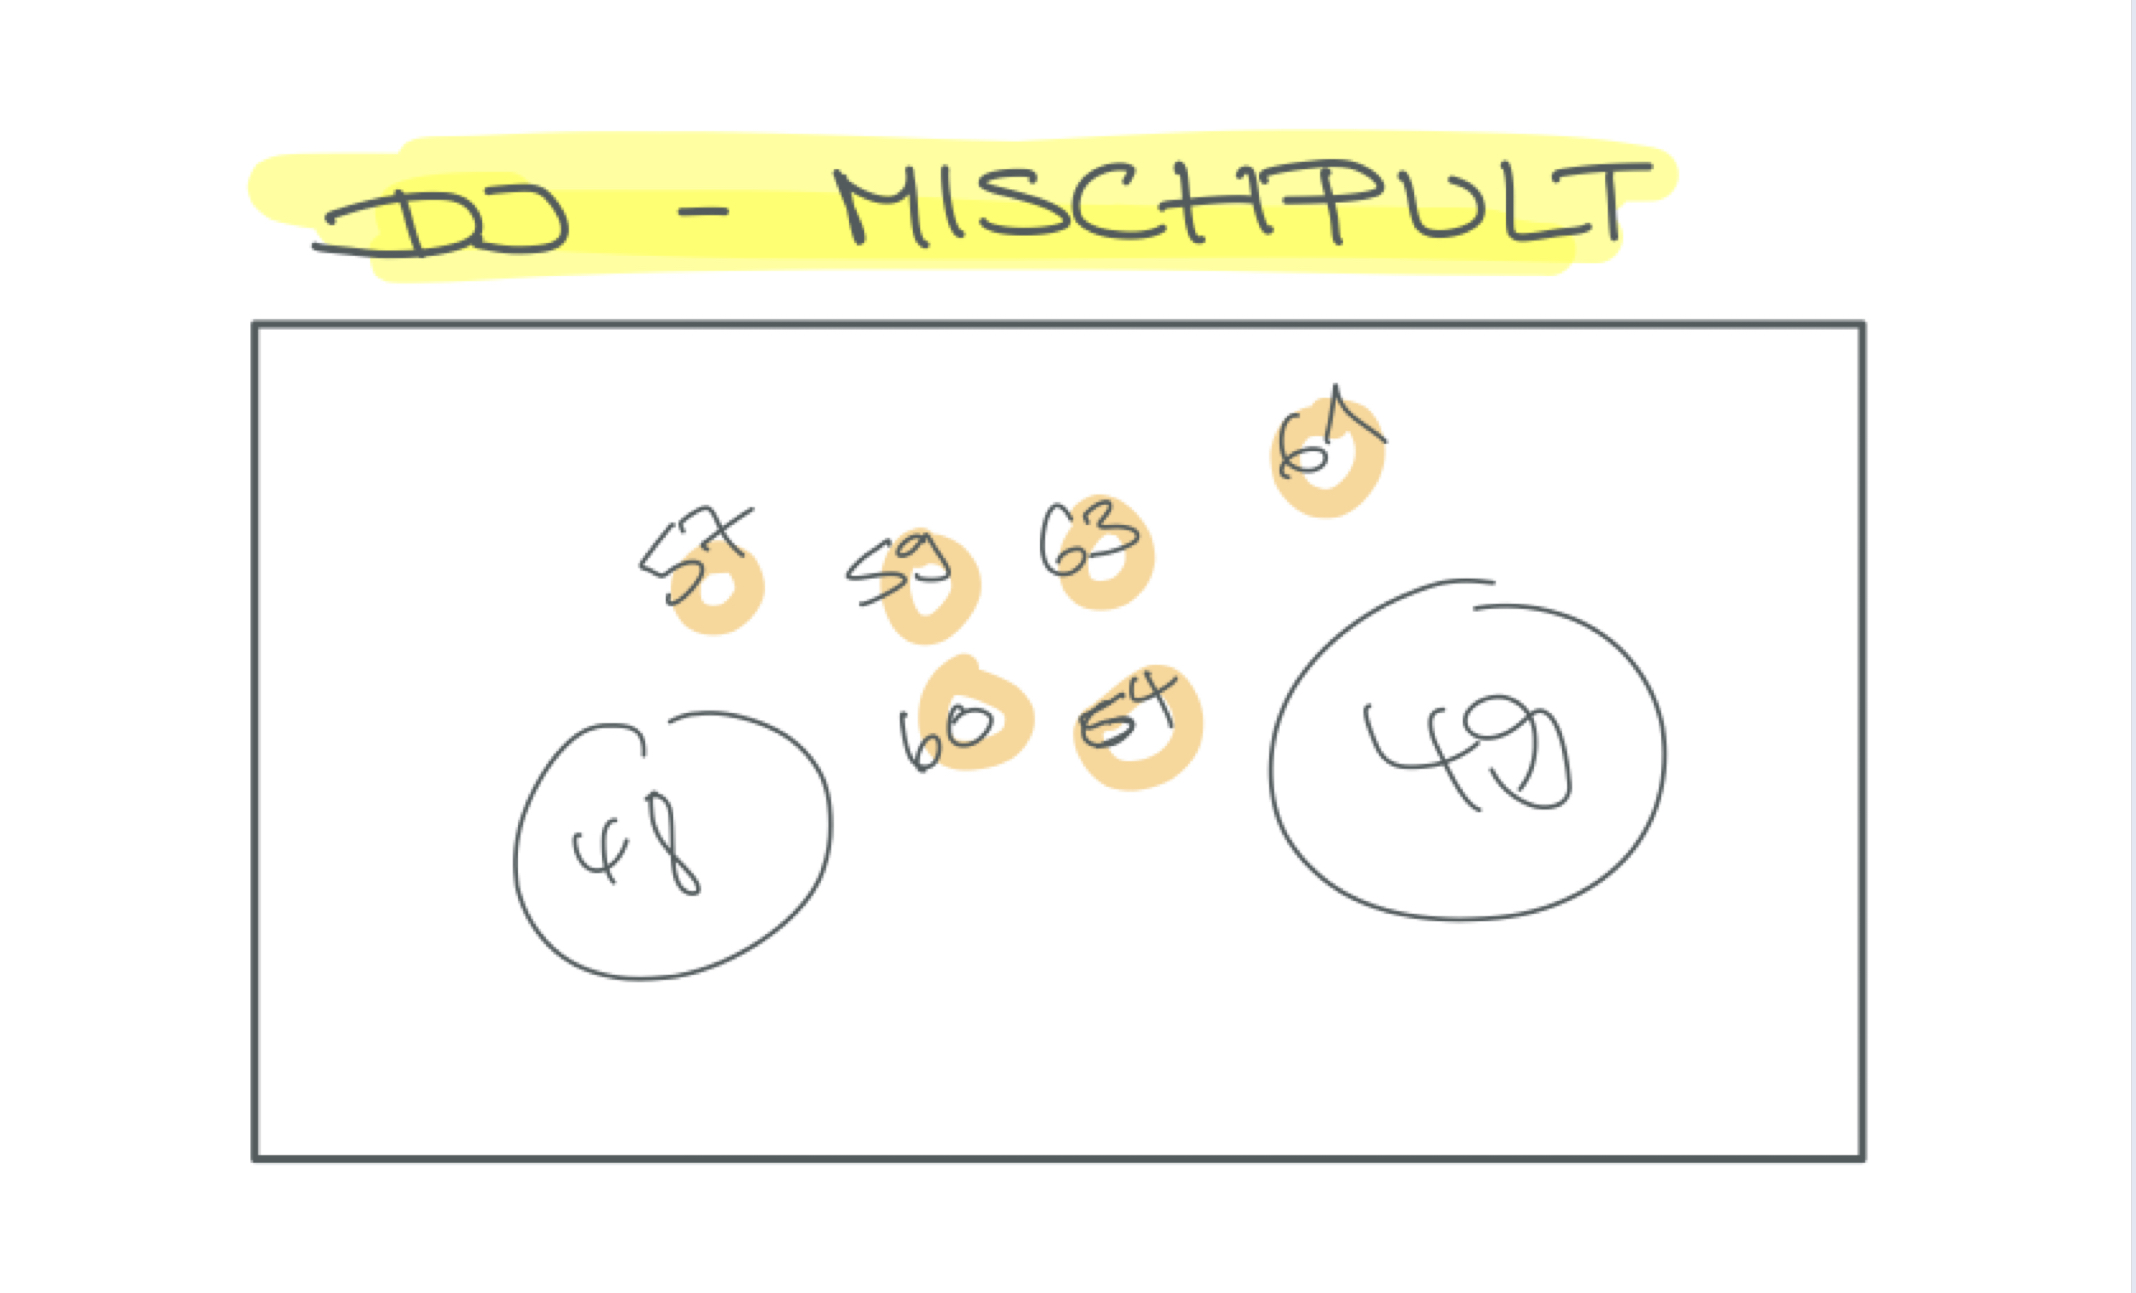 DJ - MISCHPULT
61
57 59 63
60 54
48 49